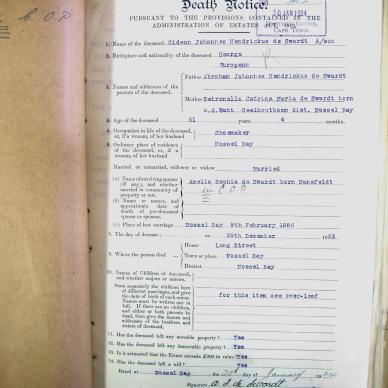 C.O.P
Death Notice
PURSUANT TO THE PROVISIONS CONTAINED IN THE
ADMINISTRATION OF ESTATES
10 JAN 1924
CAPE TOWN.
1. Name of the deceased Gideon Johannes Hendrickus de Swardt A/son
2. Birthplace and nationality of the deceased George
European
3. Names and addresses of the parents of the deceased.
Father Abraham Johannes Hendrickus de Swardt
Mother Petronella Catrina Maria de Swardt born
v.d.Watt Geelhoutboom dist. Mossel Bay
4. Age of the deceased 61 years 4 months.
5. Occupation in life of the deceased, or, if a woman, of her husband Shoemaker
6. Ordinary place of residence of the deceased, or, if a woman, of her husband Mossel Bay
Married or unmarried, widower or widow Married
(a) Name of surviving spouse (if any), and whether married in community of property or not.
Amelia Sophia de Swardt born Manefeldt
in C.O.P
(b) Name or names, and approximate date of death of pre-deceased spouse or spouses.
(c) Place of last marriage Mossel Bay, 9th February 1886
8. The day of decease 29th December 1923
9. Where the person died
House Long Street
Town or place Mossel Bay
District Mossel Bay
10. Names of Children of deceased, and whether majors or minors.
State separately the children born of different marriages, and give the date of birth of each minor. Names must be written out in full. If there are no children, and either or both parents be dead, then give the names and addresses of the brothers and sisters of deceased.
for this item see over-leaf
11. Has the deceased left any movable property? Yes
12. Has the deceased left any immovable property? Yes
13. Is it estimated that the Estate exceeds £300 in value? Yes
14. Has the deceased left a will? Yes
Dated at Mossel Bay the January 1924
Signature A S de Swardt